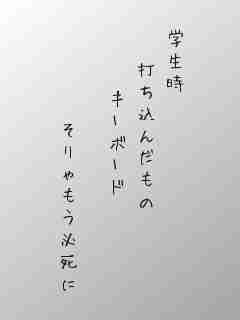 学生時
打ち込んだもの
キーボード
そりゃもう必死に